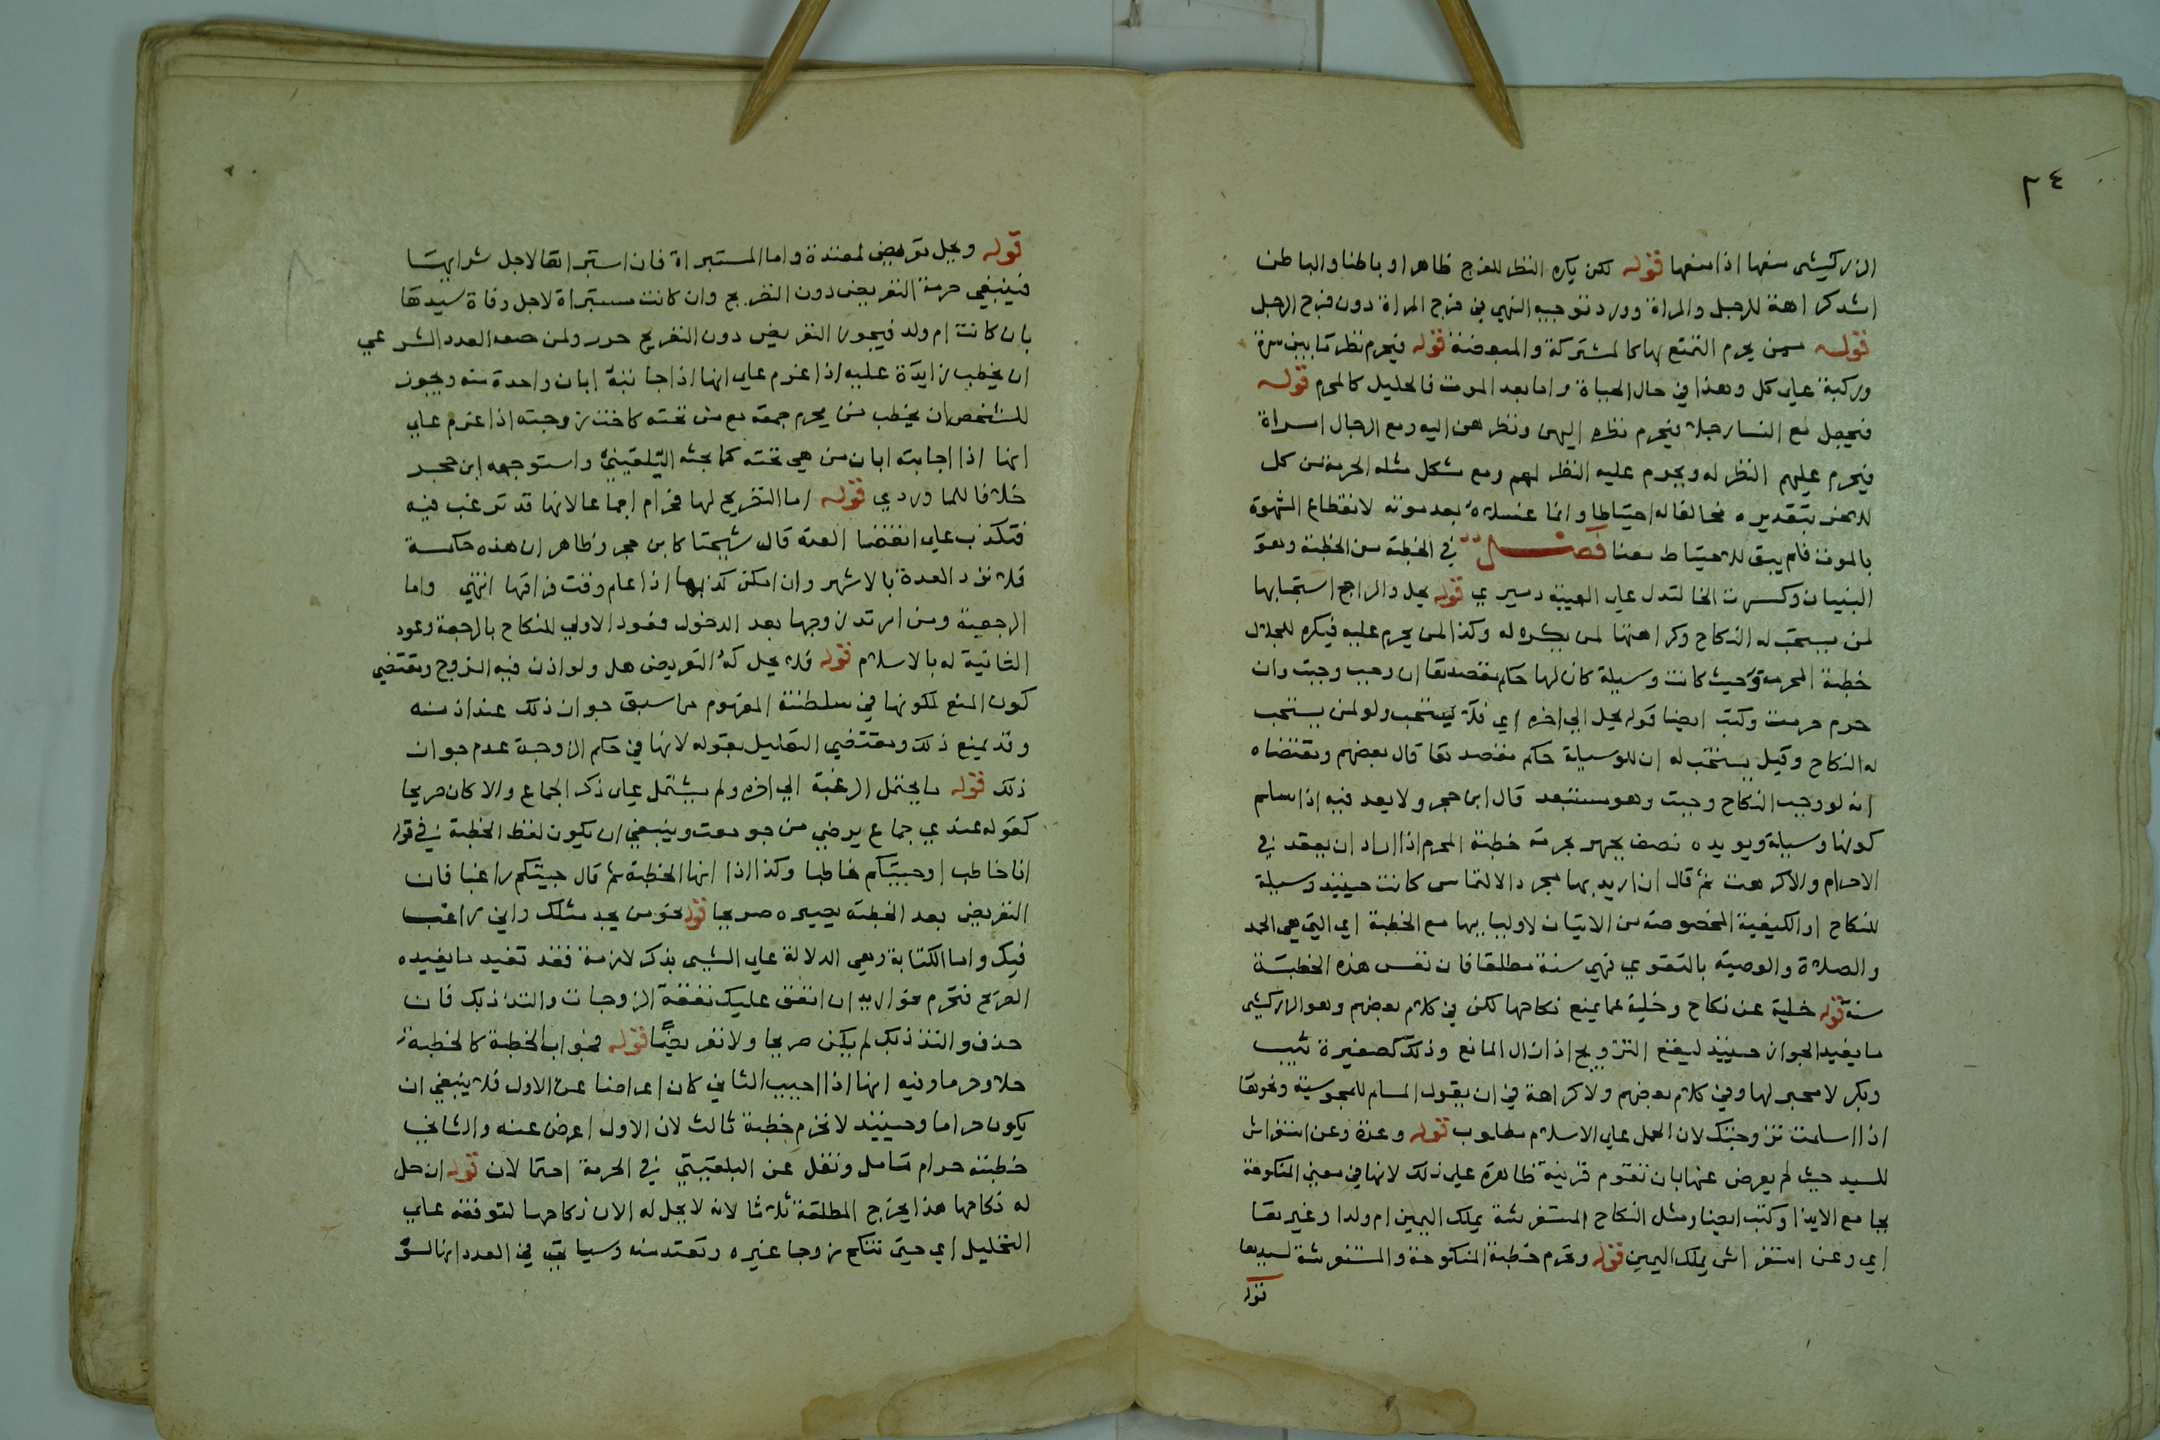 ٣٤
الزركشي منعها اذا منعها قوله لكن يكره النظر للفرج ظاهرا وباطنا والباطن
اشد كراهة للرجل والمراة وورد توجيه النهي في فرج المراة دون فرج الرجل
قوله ممن يحرم التمتع بها كالمشتركة والمبعضة قوله فيحرم نظر ما بين سرة
وركبة على كل وهذا في حال الحياة واما بعد الموت فالحليل كالمحرم قوله
فيجعل مع النسا رجلا فيحرم نظره اليهن ونظرهن اليه ومع الرجال امراة
فيحرم عليهم النظر له ويحرم عليه النظر لهم ومع مشكل مثله الحرمة من كل
للاخر بتقديره مخالفا له احتياطا وانما غسلاه بعد موته لانقطاع الشهوة
بالموت فلم يبق للاحتياط معنا فصل في الخطبة من الخطبة وهو
البنيان وكسرت الخا لتدل على الهيبة دميري قوله يحل والراجح استحبابها
لمن يستحب له النكاح وكراهتها لمن يكره له وكذا لمن يحرم عليه فيكره للحلال
خطبة المحرمة وحيث كانت وسيلة كان لها حكم مقصدها ان وجب وجبت وان
حرم حرمت وكتب ايضا قوله يحل الي اخره اي فلا يستحب ولو لمن يستحب
له النكاح وقيل يستحب له ان للوسيلة حكم مقصدها قال بعضهم ومقتضاه
انه لو وجب النكاح وجبت وهو مستبعد قال ابن حجر ولا بعد فيه اذا سلم
كونها وسيلة ويويده نصف بجهر بحرمة خطبة المحرم اذا اراد ان يعقد في
الاحرام والا كرهت ثم قال ان اريد بها مجرد الالتماس كانت حينيذ وسيلة
للنكاح او الكيفية المخصوصة من الاتيان لاوليايها مع الخطبة اي التي هي الحمد
والصلاة والوصية بالتقوي فهي سنة مطلقا فان نفس هذه الخطبة
سنة قوله خلية عن نكاح وخلية عما يمنع نكاحها لكن في كلام بعضهم وهو الزركشي
ما يفيد الجواز حينيذ ليقع التزويج اذا زال المانع وذلك كصغيرة ثيب
وبكر لا مجبر لها وفي كلام بعضهم ولا كراهة في ان يقول المسلم للمجوسية ونحوها
اذا اسلمت تزوجتك لان الحمل على الاسلام مطلوب قوله وعدة وعن استفراش
للسيد حيث لم يعرض عنها بان تقوم قرينة ظاهرة على ذلك لانها في معني المنكوحة
بجامع الايذا وكتب ايضا ومثل النكاح المستفرشة بملك اليمين ام ولدا وغيرها
اي وعن استفراش بملك اليمين قوله وتحرم خطبة المنكوحة والمستفرشة لسيدها
قوله
قوله ويحل تعريض لمعتدة واما المستبراة فان استبراها لاجل شرايها
فينبغي حرمة التعريض دون التصريح وان كانت مستبراة لاجل وفاة سيدها
بان كانت ام ولد فيجوز التعريض دون التصريح حرر ولمن معه العدد الشرعي
ان يخطب زايدة عليه اذا عزم على انها اذا جابته ابان واحدة منه ويجوز
للشخص ان يخطب من يحرم جمعه مع من تحته كاخت زوجته اذا عزم على
انها اذا اجابته ابان من هي تحته كما بحثه البلقيني واستوجهه ابن حجر
خلافا للماوردي قوله اما التصريح لها فحرام اجماعا لانها قد ترغب فيه
فتكذب على انقضا العدة قال شيخنا كابن حجر وظاهر ان هذه حكمة
فلا ترد العدة بالاشهر وان امكن كذبها اذا علم وقت فراقها انتهي واما
الرجعية ومن ارتد زوجها بعد الدخول فعود الاولي للنكاح بالرجعة وعود
الثانية له بالاسلام قوله فلا يحل له التعريض هل ولو اذن فيه الزوج ومقتضي
كون المنع لكونها في سلطنته المفهوم مما سبق جواز ذلك عند اذنه
وقد يمنع ذلك ومقتضي التعليل بقوله لانها في حكم الزوجة عدم جواز
ذلك قوله ما يحتمل الرغبة الي اخره ولم يشتمل على ذكر الجماع والا كان صريحا
كقوله عندي جماع يرضي من جومعت وينبغي ان يكون لفظ الخطبة في قوله
انا خاطب او جيتكم خاطبا وكذا اذا انها الخطبة ثم قال جيتكم راغبا فان
التعريض بعد الخطبة يصيره صريحا قوله نحو من يجد مثلك واني راغب
فيك واما الكناية وهي الدلالة على الشيي بذكر لازمه فقد تفيد ما يفيده
الصريح فتحرم نحو اريد ان انفق عليك نفقة الزوجات واتلذذ بك فان
حذف واتلذذ بك لم يكن صريحا ولا تعريضا قوله فجواب الخطبة كالخطبة
حلا وحرما وفيه انها اذا اجيب الثاني كان اعراضا عن الاول فلا ينبغي ان
يكون حراما وحينيذ لا تحرم خطبة ثالث لان الاول اعرض عنه والثاني
خطبته حرام تامل ونقل عن البلقيني في الحرمة احتمالان قوله ان حل
له نكاحها هذا يخرج المطلقة ثلاثا لانه لا يحل له الان نكاحها لتوقفه على
التحليل اي حتي تنكح زوجا غيره وتعتد منه وسياتي في العدد انها لو